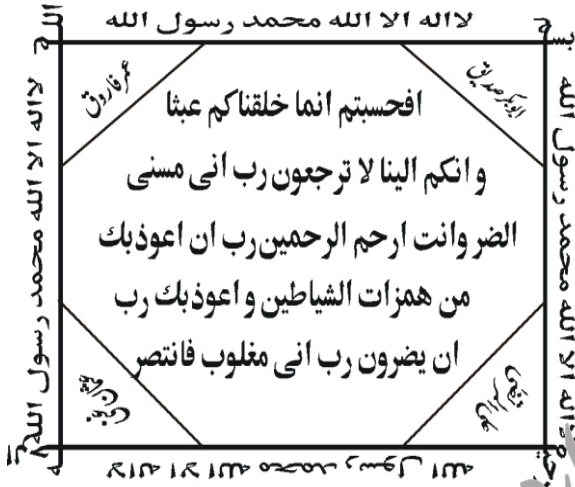 لااله الا الله محمد رسول الله
ابوبکر صدیق
عمر فاروق
افحسبتم انما خلقناکم عبثا
و انکم الینا لا ترجعون رب انی مسنی
الضر وانت ارحم الرحمین رب ان اعوذبك
من همزات الشیاطین و اعوذبك رب
ان یضرون رب انی مغلوب فانتصر
علی المرتضی
عثمان غنی
لااله الا الله محمد رسول الله
لااله الا الله محمد رسول الله
لااله الا الله محمد رسول الله